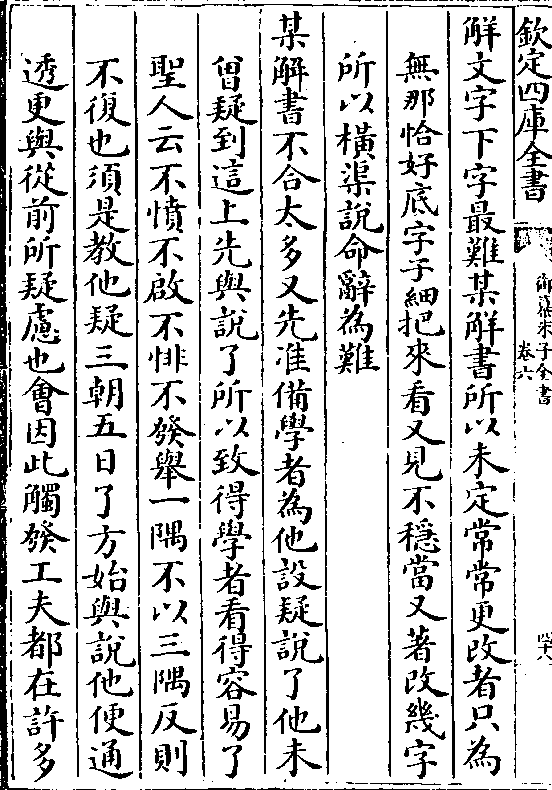 欽定四庫全書
御纂朱子全書
卷六
四十八
解文字下字最難某解書所以未定常常更改者只為
無那恰好底字子細把來看又見不穩當又著改幾字
所以橫渠說命辭為難
某解書不合太多又先准備學者為他設疑說了他未
曽疑到這上先與說了所以致得學者看得容易了
聖人云不憤不啟不悱不發舉一隅不以三隅反則
不復也須是教他疑三朝五日了方始與說他便通
透更與從前所疑慮也㑹因此觸發工夫都在許多